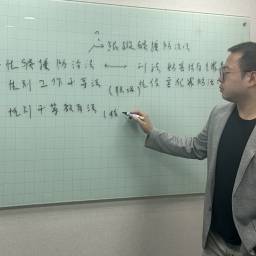 跟蹤騷擾防治法
性騷擾防治法 ⟷ 刑法 妨害性自主罪
性別工作平等法 (職場) 性侵害犯罪防治法
性別平等教育法 (校